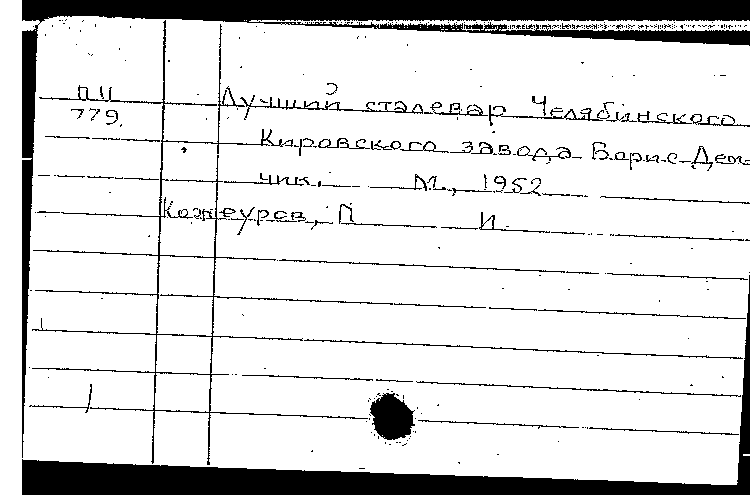 ПИ
779.
Лучший сталевар Челябинского
Кировского завода Борис Дем-
чик. М., 1952
Кожеуров, П И.